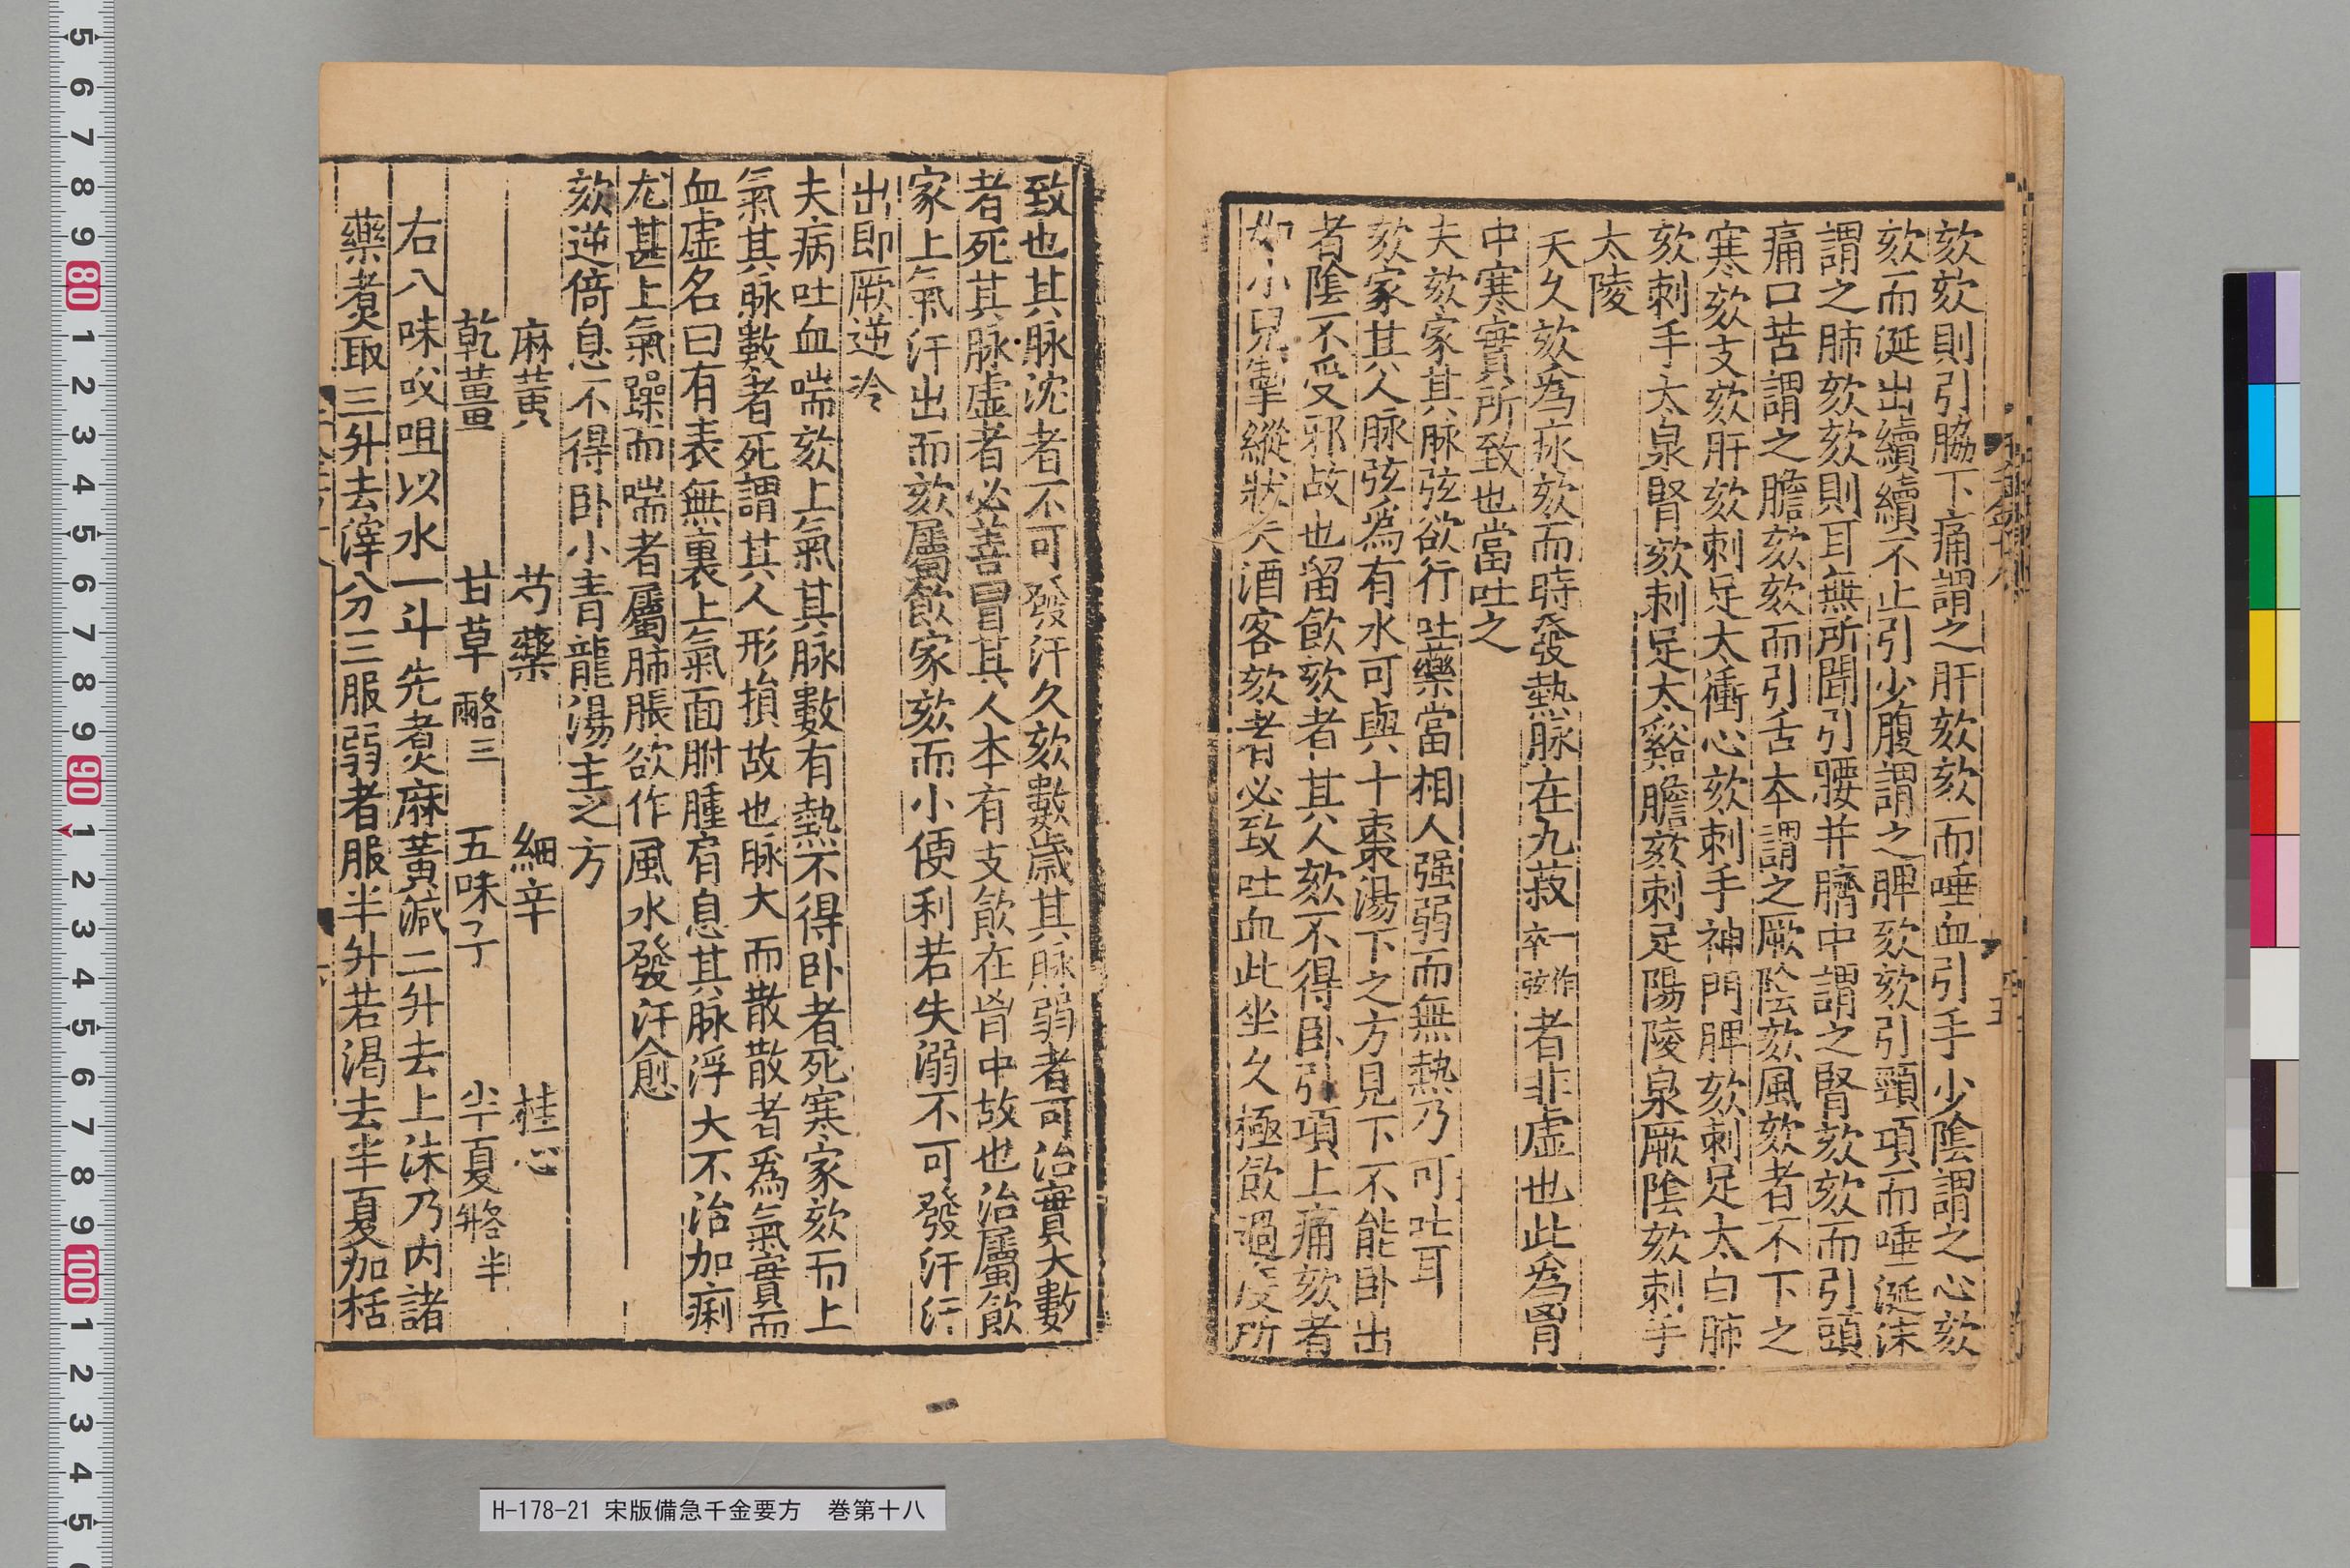 欬欬則引脇下痛謂之肝欬欬而唾血引手少陰謂之心欬
欬而涎出續續不止引少腹謂之脾欬欬引頸項而唾涎沫
謂之肺欬欬則耳無所聞引腰并臍中謂之腎欬欬而引頭
痛口苦謂之膽欬欬而引舌本謂之厥陰欬風欬者不下之
寒欬支欬肝欬刺足太衝心欬刺手神門脾欬刺足太白肺
欬刺手太泉腎欬刺足太谿膽欬刺足陽陵泉厥陰欬刺手
太陵
夫久欬爲疢欬而時發熱脉在九菽一作卒弦者非虛也此爲胷
中寒實所致也當吐之
夫欬家其脉弦欲行吐藥當相人强弱而無熱乃可吐耳
欬家其人脉弦爲有水可與十棗湯下之方見下不能臥出
者陰不受邪故也留飲欬者其人欬不得臥引項上痛欬者
如小兒掣縱狀夫酒客欬者必致吐血此坐久極飲過度所
致也其脉沈者不可發汗久欬數歲其脉弱者可治實大數
者死其脉虛者必善冒其人本有支飲在胷中故也治屬飲
家上氣汗出而欬屬飲家欬而小便利若失溺不可發汗汗
出即厥逆冷
夫病吐血喘欬上氣其脉數有熱不得臥者死寒家欬而上
氣其脉數者死謂其人形損故也脉大而散散者爲氣實而
血虛名曰有表無裏上氣面胕腫肩息其脉浮大不治加痢
尤甚上氣躁而喘者屬肺脹欲作風水發汗愈
欬逆倚息不得臥小青龍湯主之方
麻黃 芍藥 細辛 桂心
乾薑 甘草各三兩 五味子 半夏各半升
右八味㕮咀以水一斗先煮麻黃減二升去上沫乃內諸
藥煮取三升去滓分三服弱者服半升若渴去半夏加栝
H-178-21 宋版備急千金要方 巻第十八